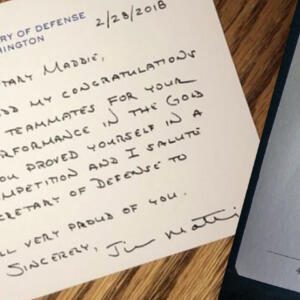 RY OF DEFENSE
HINGTON
2/28/2018
TARY MADDIE,
DD MY CONGRATULATIONS
TEAMMATES FOR YOUR
ERFORMANCE IN THE GOLD
OU PROVED YOURSELF IN A
MPETITION AND I SALUTE
CRETARY OF DEFENSE TO
LL VERY PROUD OF YOU.
SINCERELY, Jim Matti